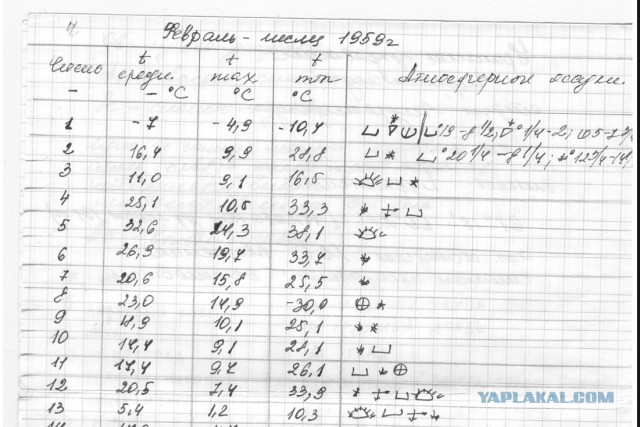 Февраль - месяц 1959г
Число t средн. t max t min Атмосферные осадки.
- - °C °C °C
1 -7 -4,9 -10,4
2 16,4 9,9 28,8
3 11,0 9,1 16,5
4 25,1 10,5 33,3
5 32,6 24,3 38,1
6 26,9 19,7 33,7
7 20,6 15,8 25,5
8 23,0 14,9 -30,0
9 18,9 10,1 25,1
10 14,4 9,1 21,1
11 17,4 9,7 26,1
12 20,5 7,4 33,9
13 5,4 1,2 10,3
YAPLAKAL.COM